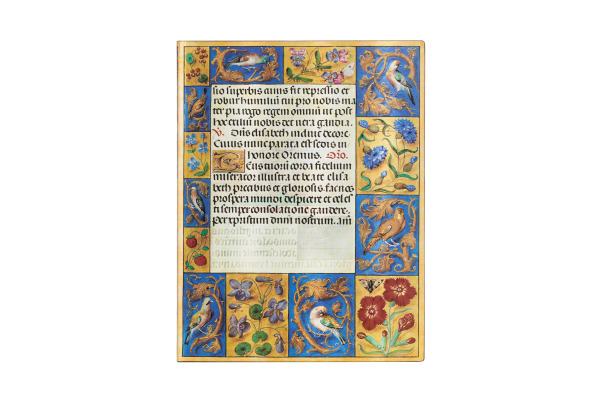 sio superbis cuius fit repressio et
robur humiliū tui pro nobis ma
ter pia rogo regem omniū ut post
hoc exiliū nobis det vera gaudia.
V. Dñs elisabeth induit decore.
Cuius nunc parata est secis in
honore Oremus. Orō.
tuorum corda fidelium
miserator illustra et beate elisa
beth precibus et gloriosis. fac nos
prospera mundi despicere et celes
ti semper consolatione gaudere.
Per xpristum dnm nostrum. am